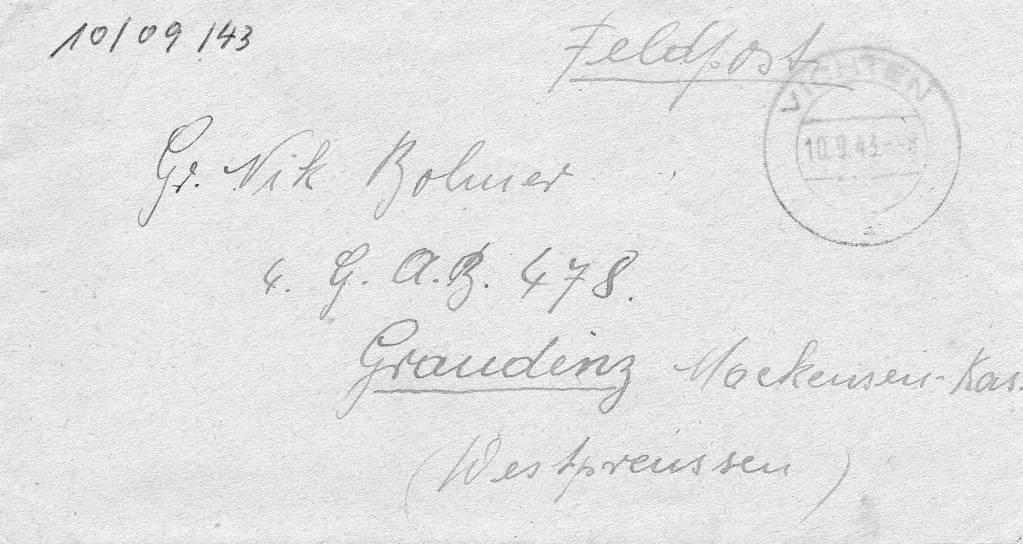 10/09/43
Feldpost
VICHTEN
10.9.43.--8
a
Gr. Nik Bolmer
4. G. A.B. 478.
Graudenz Mackensen-Kas.
(Westpreussen)